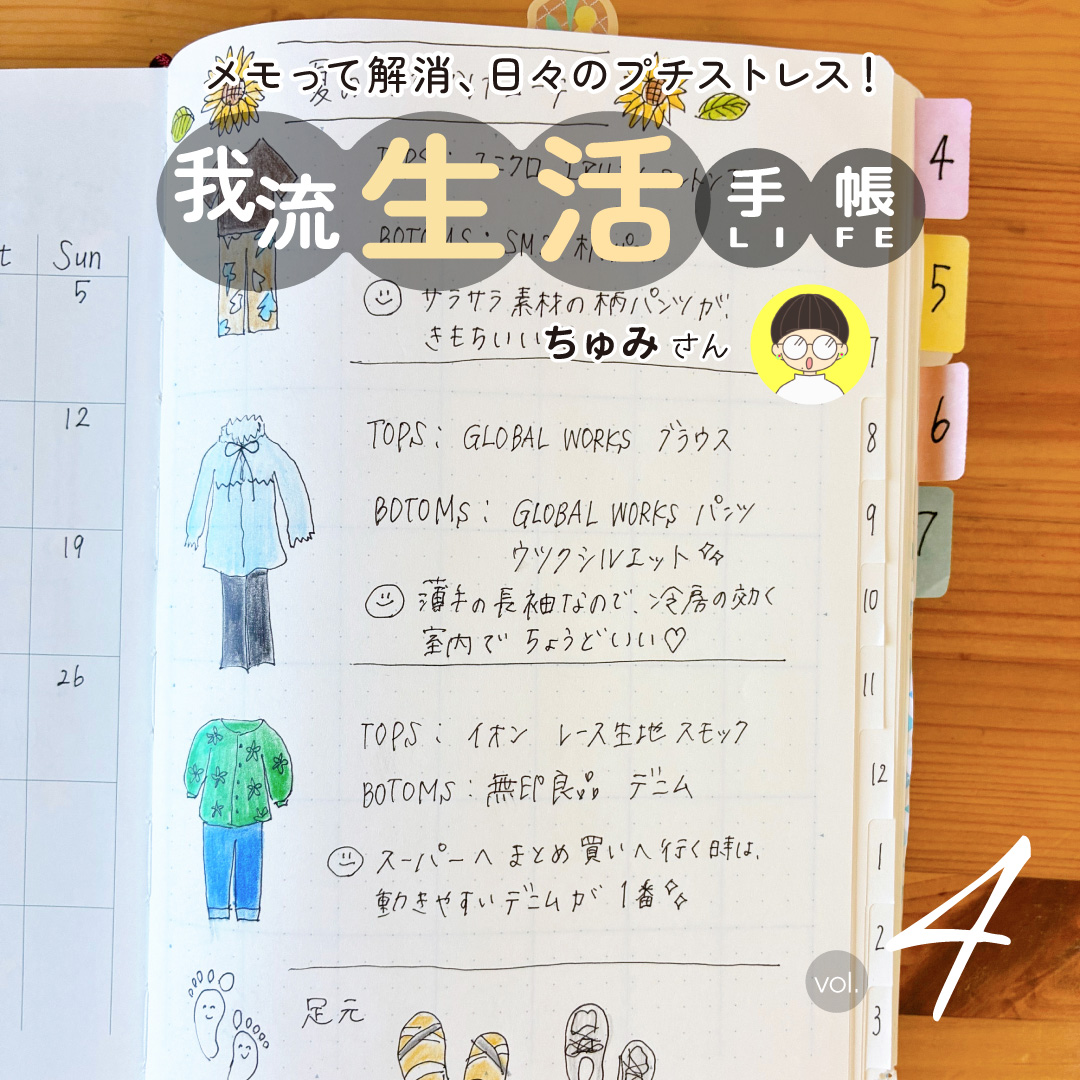 メモって解消、日々のプチストレス！
我流 生活 手帳
LIFE
TOPS: ユニクロ
BOTOMS: SM2 柄パンツ
サラサラ素材の柄パンツが、
きもちいい
ちゅみさん
TOPS: GLOBAL WORKS ブラウス
BOTOMS: GLOBAL WORKS パンツ
ウツクシルエット
薄手の長袖なので、冷房の効く
室内で ちょうどいい♡
TOPS: イオン レース生地 スモック
BOTOMS: 無印良品 デニム
スーパーへ まとめ買いへ行く時は、
動きやすいデニムが 1番
足元
t
Sun
5
12
19
26
4
5
6
7
7
8
9
10
11
12
1
2
3
vol. 4